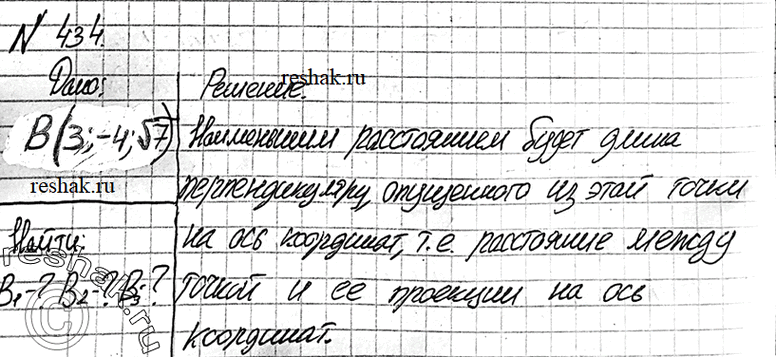 N 434.
Дано:
B(3;-4;√7)
reshak.ru
Найти:
B₁-? B₂-? B₃-?
reshak.ru
Решение.
reshak.ru
Наименьшим расстоянием будет длина
перпендикуляру, опущенного из этай точки
на ось координат, т.е. расстояние между
точкой и ее проекции на ось
координат.